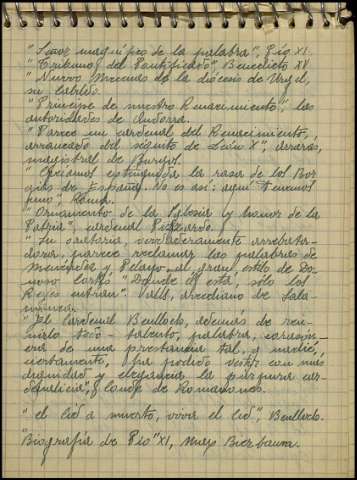 "Señor magnífico de la palabra", Pío XI.
"Tribuno del Pontificado", Benedicto XV.
"Nuevo Mecenas de la diócesis de Urgel,
su cabildo.
"Príncipe de nuestro Renacimiento", las
autoridades de Andorra.
"Parece un cardenal del Renacimiento,
arrancado del séquito de León X", arrarás,
magistral de Burgos.
extinguida la raza de los Bor
gias de España. No es así: aquí tenemos
uno", Roma.
"Ornamento de la Iglesia y honor de la
Patria", cardenal
"Su oratoria, verdaderamente arrebata-
dora, parece reclamar las palabras de
Menéndez y Pelayo al gran estilo de Do-
noso Cortés "Donde él está, sólo los
Reyes entran". Valls, arcediano de Sala-
manca.
"El Cardenal Benlloch, además de reu-
nirlo todo – talento, palabra, corazón,
era de una prestancia tal, q nadie,
ciertamente, ha podido vestir con más
dignidad y elegancia la púrpura car
denalicia", Conde de Romanones.
"el Cid a muerto, viva el Cid", Benlloch.
Biografía de Pío XI, Mñr Bierbaum.